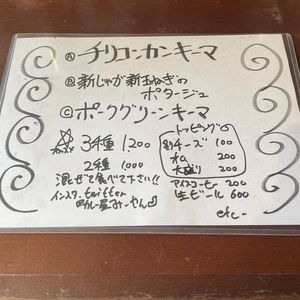 Ⓐ チリコンカンキーマ
Ⓑ 新じゃが新玉ねぎの
ポタージュ
Ⓒ ポークグリーンキーマ
3種 1200
2種 1000
混ぜて食べて下さい!!
インスタ、twitter
トッピング
チーズ 100
200
大盛り 200
アイスコーヒー 200
生ビール 600
etc-